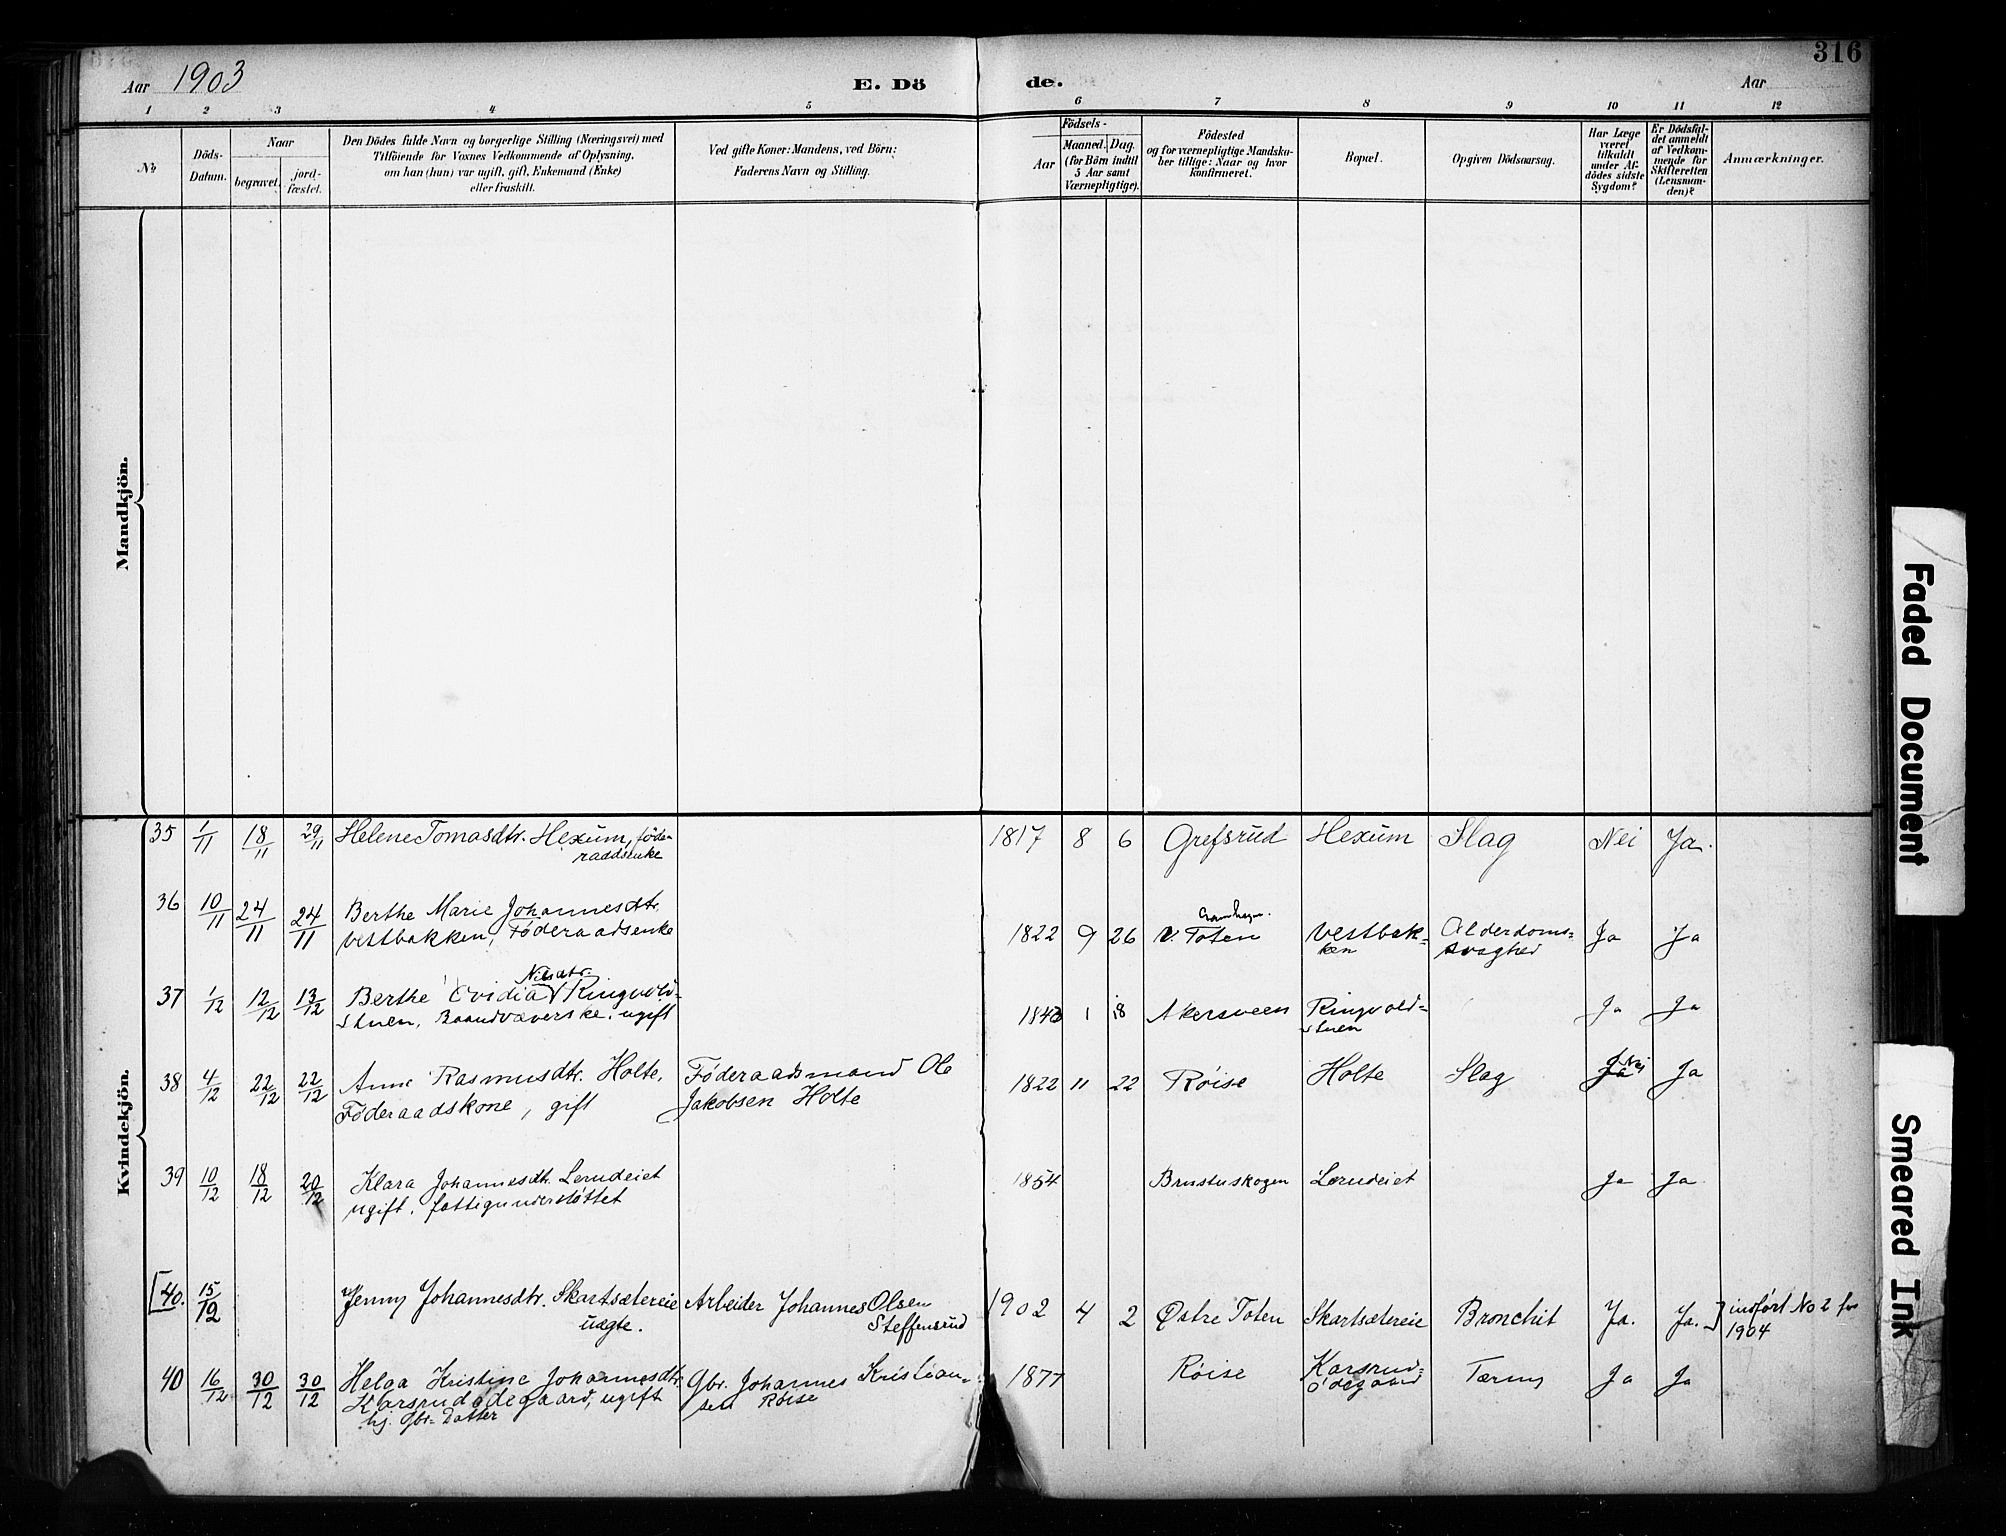 316
Aar 1903
E. Dö de.
Aar
1 2 3 4 5 6 7 8 9 10 11 12
No.
Döds-
Datum.
Naar
begravet.
jord-
fæstet.
Den Dödes fulde Navn og borgerlige Stilling (Næringsvei) med
Tilföiende for Voxnes Vedkommende af Oplysning,
om han (hun) var ugift, gift, Enkemand (Enke)
eller fraskilt.
Ved gifte Koner: Mandens, ved Börn:
Faderens Navn og Stilling.
Födsels-
Aar
Maaned. Dag.
(for Börn indtil
5 Aar samt
Værnepligtige).
Födested
og for værnepligtige Mandska-
ber tillige: Naar og hvor
konfirmeret.
Bopæl.
Opgiven Dödsaarsag.
Har Læge
været
tilkaldt
under Af-
dödes sidste
Sygdom?
Er Dödsfal-
det anmeldt
af Vedkom-
mende for
Skifteretten
(Lensman-
den)?
Anmærkninger.
Mandkjön.
Kvindekjön.
35 1/11 18/11 29/11 Helene Tomasdtr. Hexum, föde-
raadsenke
1817 8 6 Grefsrud Hexum Slag Nei Ja.
36 10/11 24/11 24/11 Berthe Marie Johannesdtr.
Vestbakken, Föderaadsenke
1822 9 26 V. Toten Vestbak-
ken Alderdoms-
svaghed Ja Ja
37 1/12 12/12 13/12 Berthe Ovidia Nilsdtr. Ringvold-
stuen, Baandvæverske, ugift
1843 1 18 Akersveen Ringvold-
stuen Ja Ja
38 4/12 22/12 22/12 Anne Rasmusdtr. Holte,
Föderaadskone, gift
Föderaadsmand Ole
Jakobsen Holte
1822 11 22 Röise Holte Slag Ja Nei Ja
39 10/12 18/12 20/12 Klara Johannesdtr. Lerudeiet
ugift, fattigunderstöttet
1854 Brustuskogen Lerudeiet Ja Ja
[40. 15/12 Jenny Johannesdtr. Skartsætereie
uægte.
Arbeider Johannes Olsen
Steffensrud
1902 4 2 Östre Toten Skartsætereie Bronchit Ja. Ja.] indfört No 2 for
1904
40 16/12 30/12 30/12 Helga Kristine Johannesdtr.
Karsrudödegaard, ugift
hj. Gbr. Datter
Gbr. Johannes Kristian-
sen Röise
1877 Röise Karsrud-
ödegaard Tæring Ja Ja
Faded Document
Smeared Ink